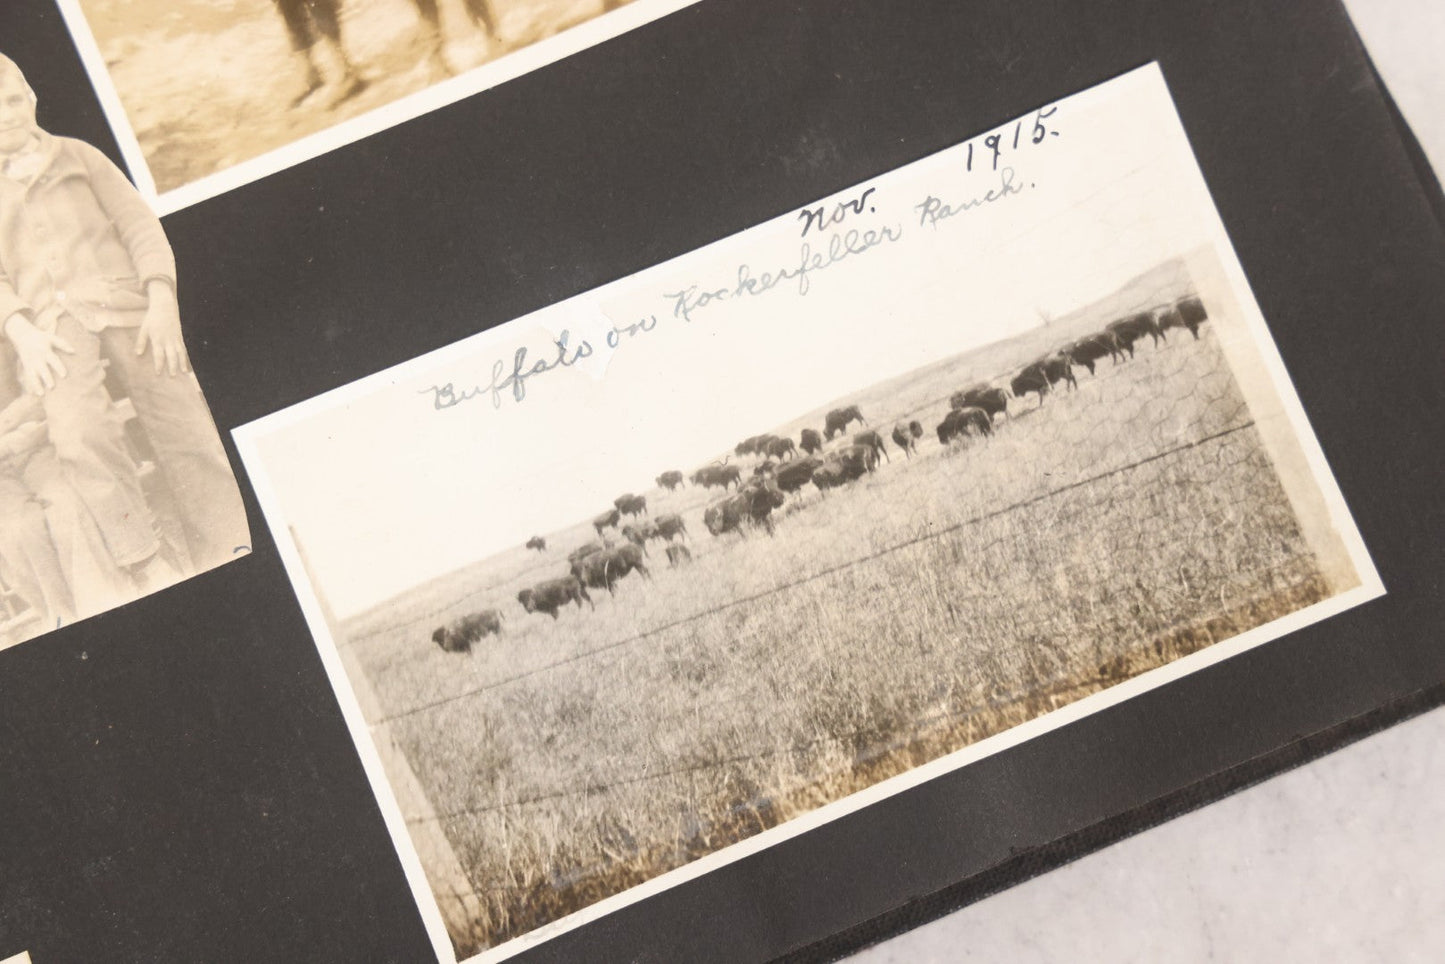 Nov. 1915.
Buffalo on Rockerfeller Ranch.